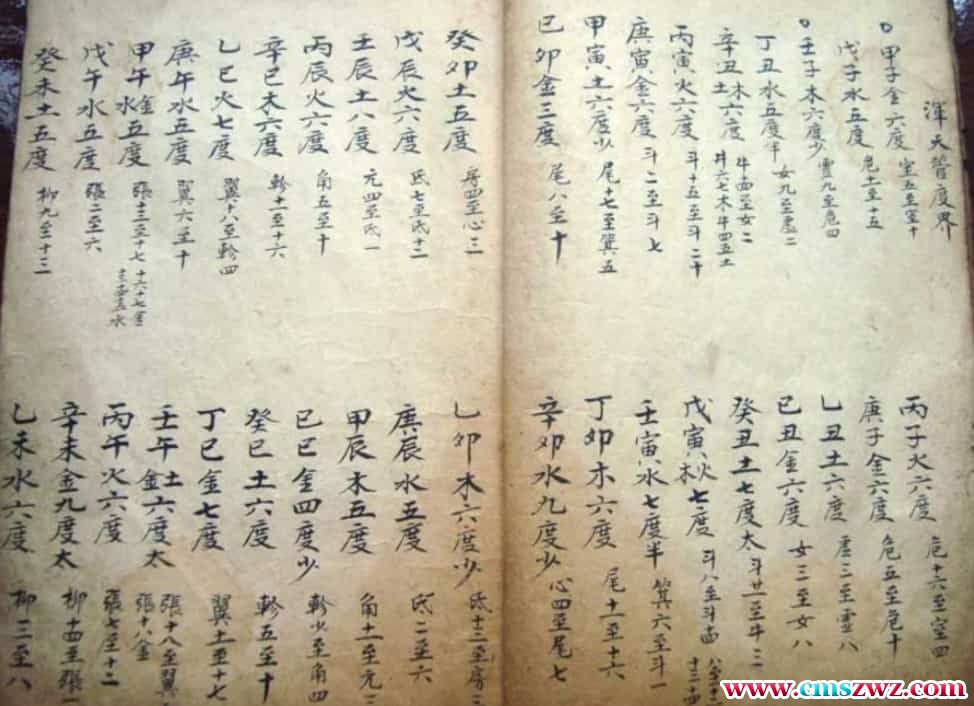 渾天盈度界
甲子金六度 室五至室十
丙子火六度 危十六至室四
戊子水五度 危十一至十五
庚子金六度 危五至危十
壬子木六度少 虛九至危四
乙丑土六度 虛三至虛八
丁丑水五度半 女九至虛二
己丑金六度 女三至女八
辛丑木土六度 牛四至女二 斗六七木牛四五土
癸丑土七度太 斗廿一至牛三
丙寅火六度 斗十五至斗二十
戊寅火七度 斗八至斗
庚寅金六度 斗二至斗七
壬寅水七度半 箕六至斗一
甲寅土六度少 尾十七至箕五
丁卯木六度 尾十一至十六
己卯金三度 尾八至十
辛卯水九度少 心四至尾七
癸卯土五度 房四至心三
乙卯木六度少 氐十三至房三
戊辰火六度 氐七至氐十二
庚辰水五度 氐二至六
壬辰土八度 亢四至氐一
甲辰木五度 角十一至亢三
丙辰火六度 角五至十
己巳金四度少 軫少至角四
辛巳木六度 軫十一至十六
癸巳土六度 軫五至十
乙巳火七度 翼十八至軫四
丁巳金七度 翼十一至十七
庚午水五度 翼六至十
壬午金土六度太 張十八至翼 張十八金
甲午金水五度 張十三至十七 十六十七金
丙午火六度 張七至十二
戊午水五度 張二至六
辛未金九度太 柳十四至張一
癸未土五度 柳九至十三
乙未水六度 柳三至八
www.cmszwz.com